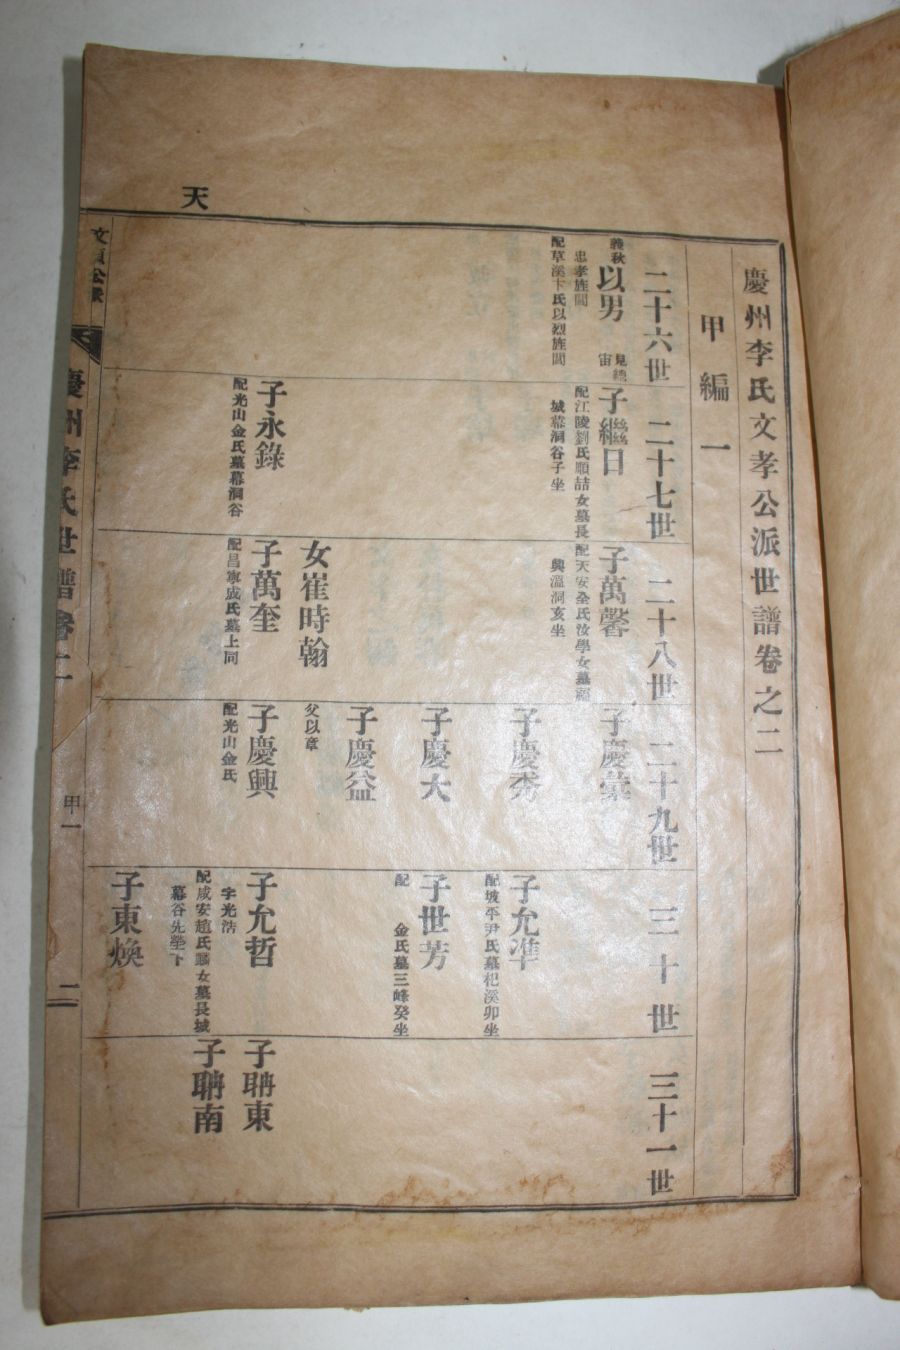 慶州李氏文孝公派世譜卷之二
甲編一
二十六世
二十七世
二十八世
二十九世
三十世
三十一世
義秋
以男
見總
宙
忠孝旌閭
配草溪卞氏以烈旌閭
子繼日
配江陵劉氏順喆女墓長
城幕洞谷子坐
子永錄
配光山金氏墓幕洞谷
子萬馨
配天安全氏汝學女墓福
興溫洞亥坐
女崔時翰
子萬奎
配昌寧成氏墓上同
子慶彙
子慶秀
子慶大
子慶益
父以章
子慶興
配光山金氏
子允準
配坡平尹氏墓杞溪卯坐
子世芳
配 金氏墓三峰癸坐
子允哲
字光浩
配咸安趙氏女墓長城
幕谷先塋下
子東煥
子聃東
子聃南
天
慶州李氏世譜卷二
甲一
二